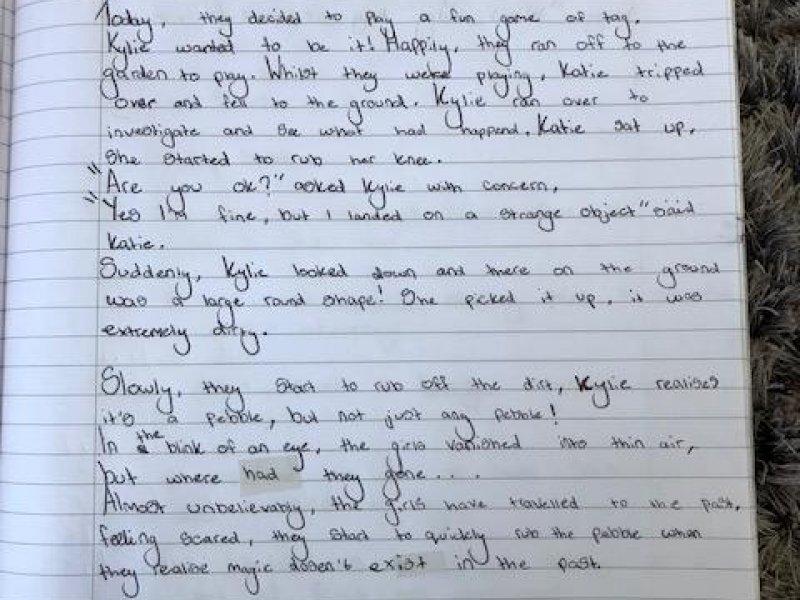 Today, they decided to play a fun game of tag.
Kylie wanted to be it! Happily, they ran off to the
garden to play. Whilst they were playing, Katie tripped
over and fell to the ground. Kylie ran over to
investigate and see what had happend. Katie sat up.
She started to rub her knee.
"Are you ok?" asked Kylie with concern.
"Yes I'm fine, but I landed on a strange object" said
Katie.
Suddenly, Kylie looked down and there on the ground
was a large round shape! She picked it up, it was
extremely dirty.
Slowly, they start to rub off the dirt, Kylie realises
it's a pebble, but not just any pebble!
In the blink of an eye, the girls vanished into thin air,
but where had they gone....
Almost unbelievably, the girls have travelled to the past,
feeling scared, they start to quickly rub the pebble when
they realise magic dosen't exist in the past.